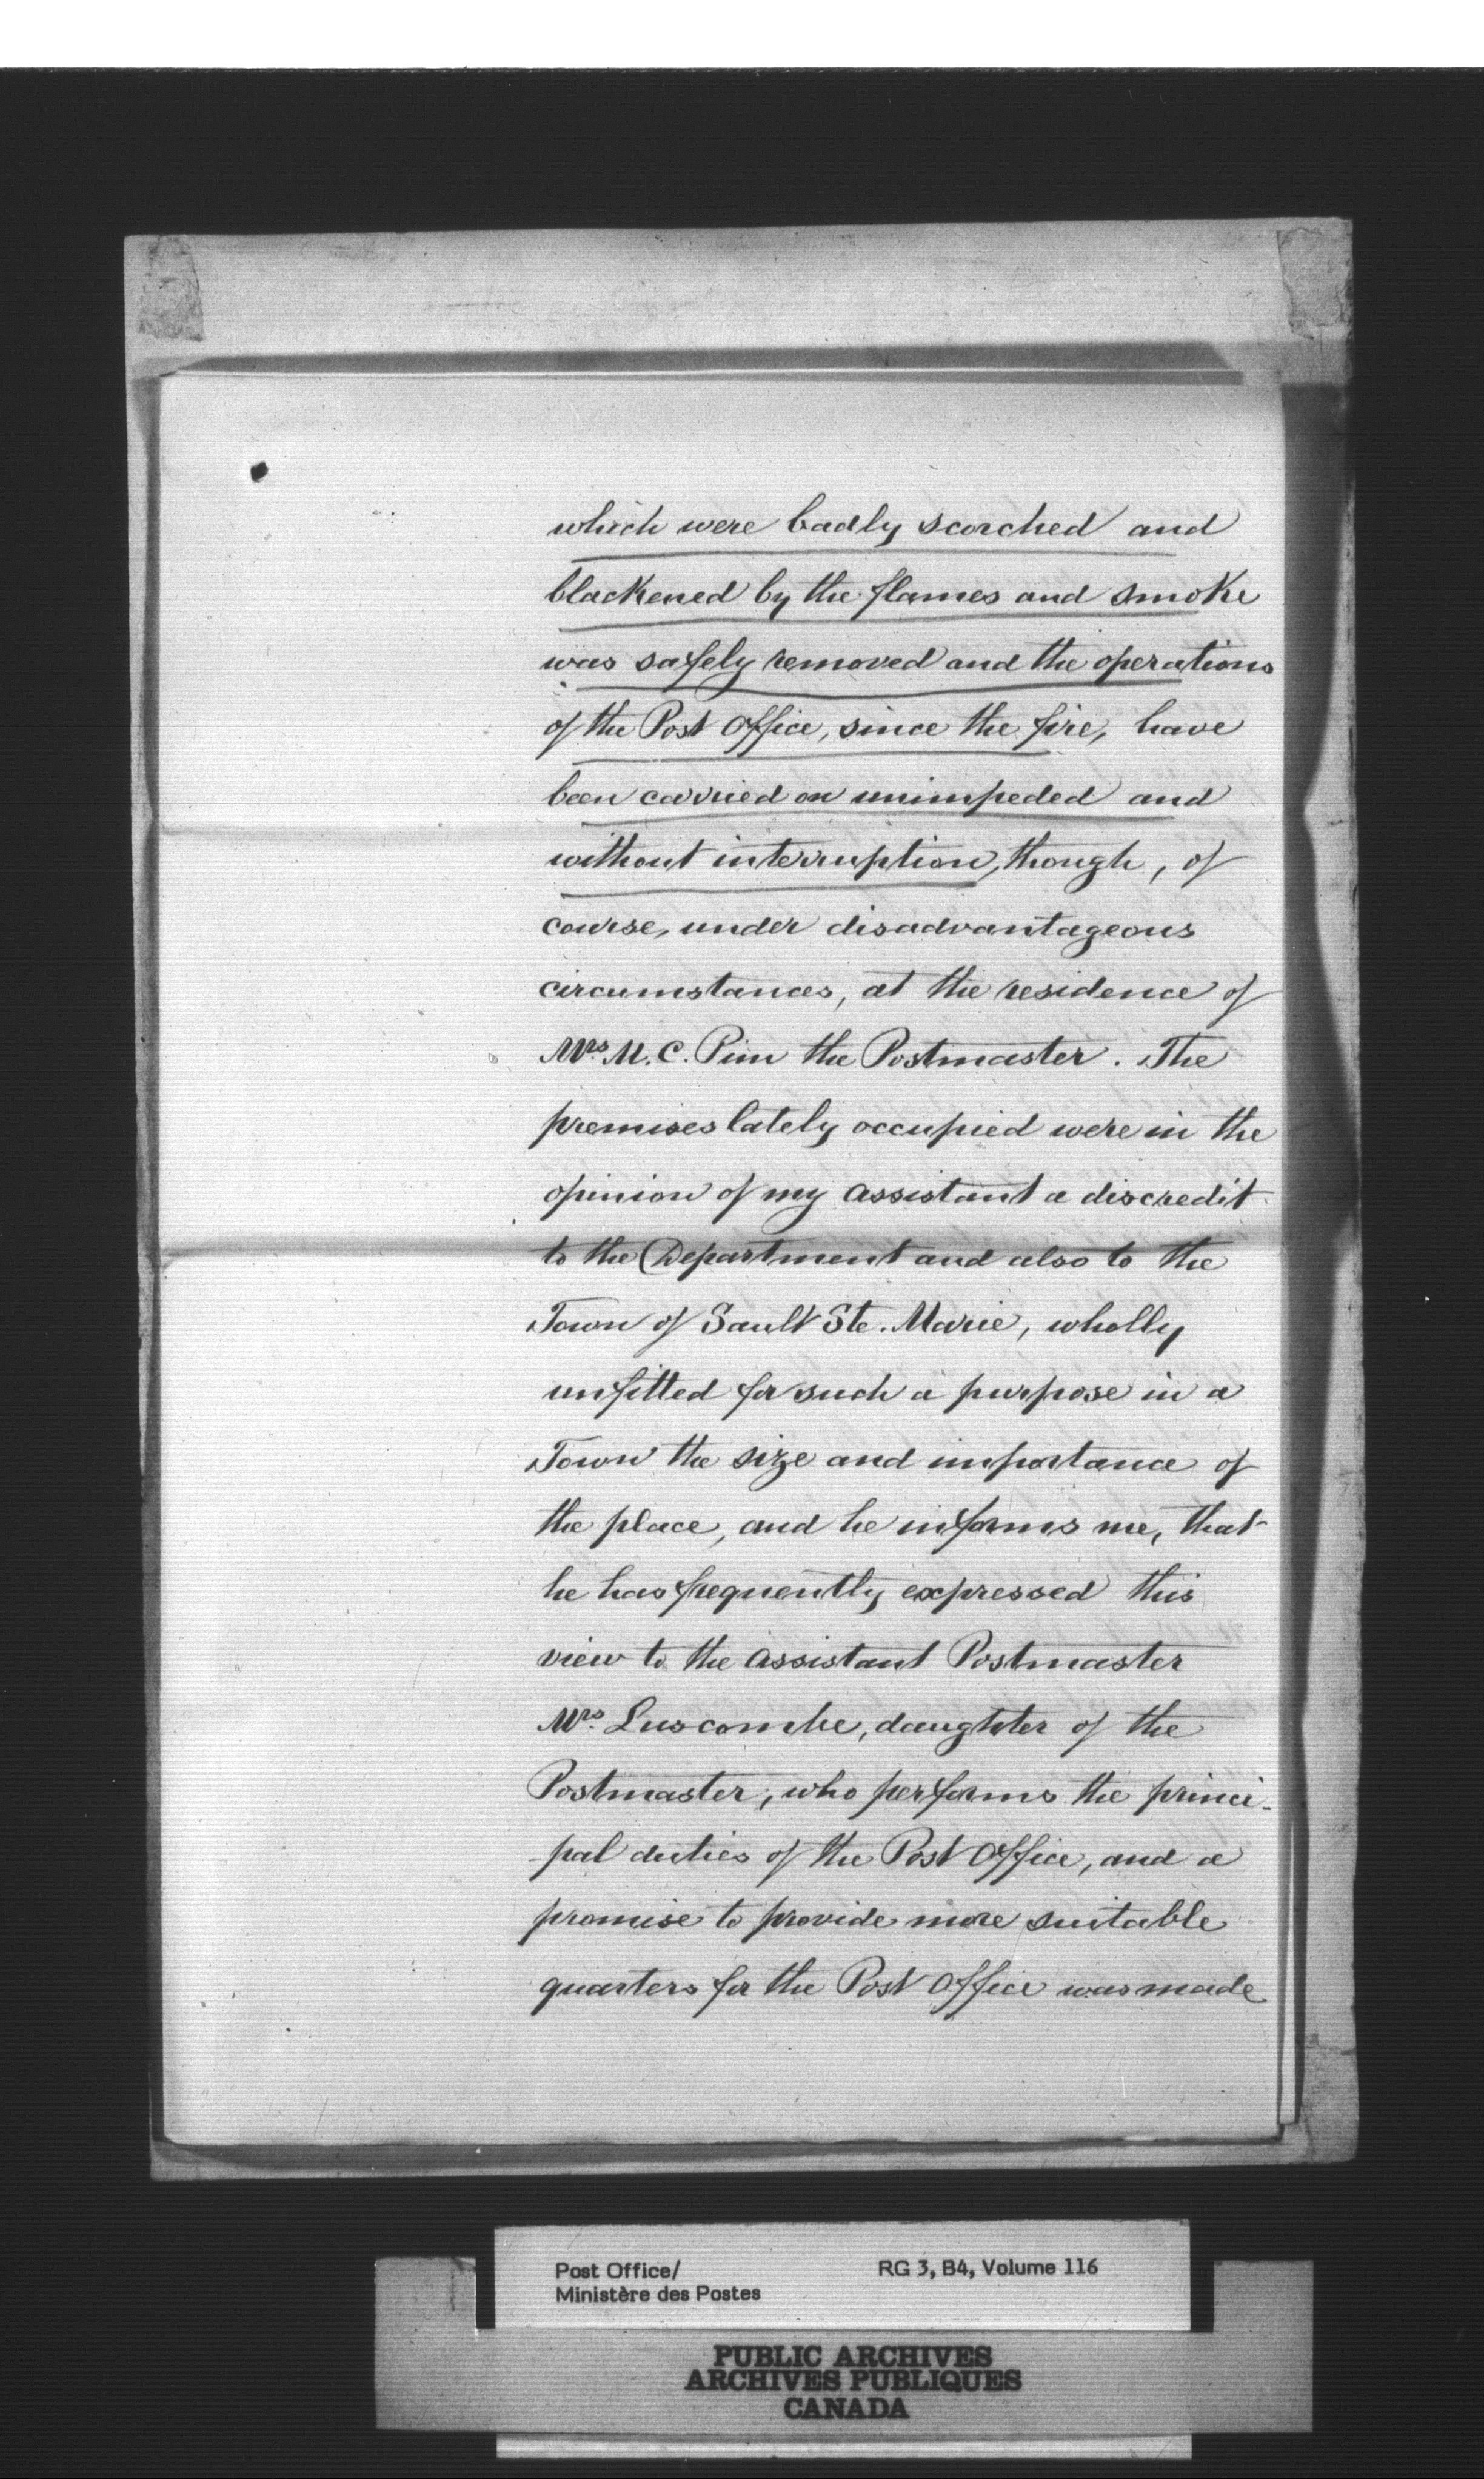 which were badly scorched and
blackened by the flames and smoke
was safely removed and the operations
of the Post Office, since the fire, have
been carried on unimpeded and
without interruption, though, of
course, under disadvantageous
circumstances, at the residence of
Mrs. M. C. Pim the Postmaster. The
premises lately occupied were in the
opinion of my assistant a discredit
to the Department and also to the
Town of Sault Ste. Marie, wholly
unfitted for such a purpose in a
Town the size and importance of
the place, and he informs me, that
he has frequently expressed this
view to the Assistant Postmaster
Mrs. Luscombe, daughter of the
Postmaster, who performs the princi-
-pal duties of the Post Office, and a
promise to provide more suitable
quarters for the Post Office was made
Post Office/ RG 3, B4, Volume 116
Ministère des Postes
PUBLIC ARCHIVES
ARCHIVES PUBLIQUES
CANADA